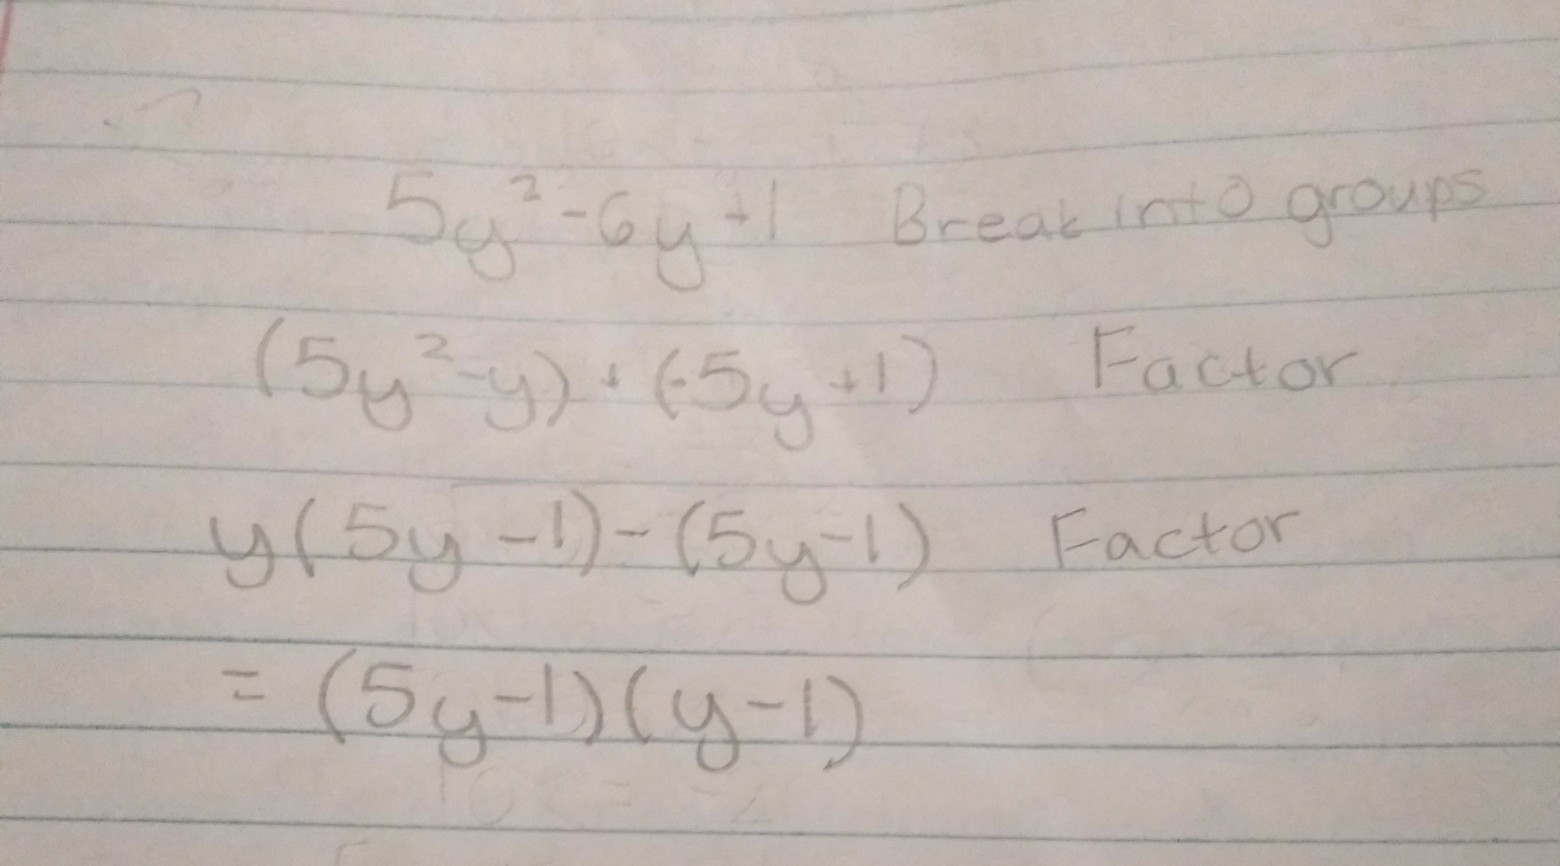 5y²-6y+1 Break into groups
(5y²-y)+(-5y+1) Factor
y(5y-1)-(5y-1) Factor
=(5y-1)(y-1)